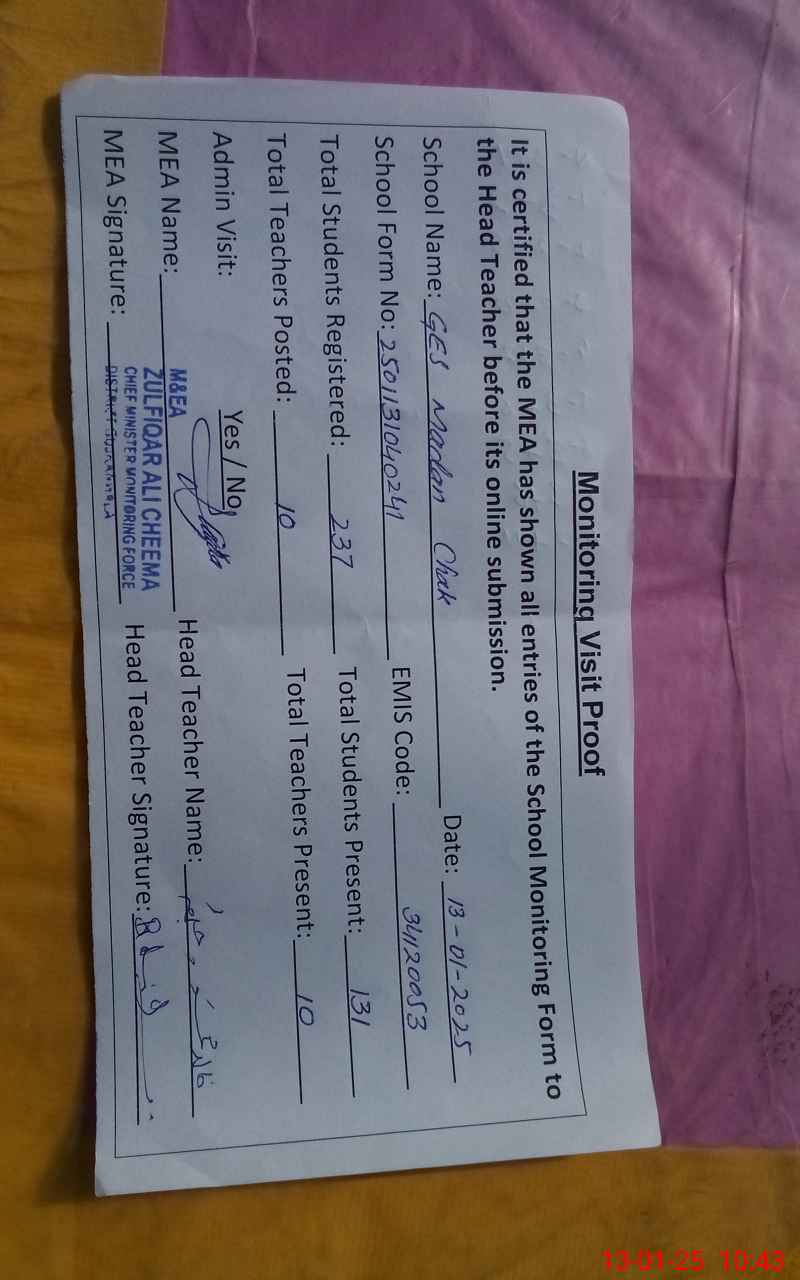 Monitoring Visit Proof
It is certified that the MEA has shown all entries of the School Monitoring Form to
the Head Teacher before its online submission.
School Name: GES Marlan Chak Date: 13-01-2025
School Form No: 2501131040241 EMIS Code: 34120053
Total Students Registered: 237 Total Students Present: 131
Total Teachers Posted: 10 Total Teachers Present: 10
Admin Visit: Yes / No
MEA Name: Head Teacher Name:
MEA Signature: Head Teacher Signature:
M&EA
ZULFIQAR ALI CHEEMA
CHIEF MINISTER MONITORING FORCE
DISTRICT GUJRANWALA
13-01-25 10:43